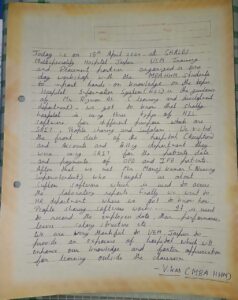 Today i.e on 15th April 2024 at SHALBY
Multispeciality Hospital Jaipur. UEM Training
and Placement Position organized a one
day workshop with the MBA HHM students
to impart hands on knowledge on the topic
Hospital Information System (HIS) in the guidance
of Mr. (Learning and development
department). we got to know that Shalby
hospital is using three types of HIS
software for different purpose which are
SRIT, People change and Infution. We visited
the front desk of the hospital (Reception)
and Accounts and billing department they
were using SRIT for the patients data
and payments of OPD and IPD patients.
After that we met Mr. Manoj kumar (Nursing
Superintendent) who taught us about
Infution software which is used to access
the laboratory reports. Finally we went to
HR department where we got to know how
People change software works. It is used
to record the employee data, their performance,
leaves, salary structure etc.
We are very thankful to UEM Jaipur to
provide an exposure of hospital which will
enhance our knowledge and foster opportunities
for learning outside the classroom.
- Vikas (MBA HHM)